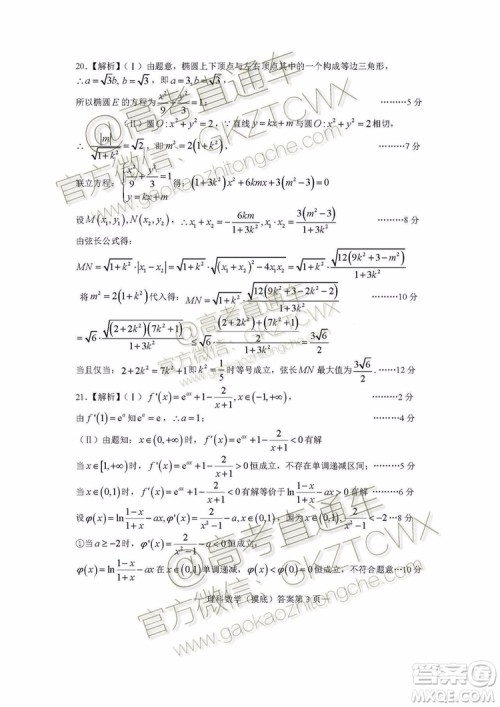 20.【解析】(Ⅰ)由题意,椭圆上下顶点与左右顶点其中的一个构成等边三角形,
∴a=√3b, b=√3, 即 a=3, b=√3,
所以椭圆 E 的方程为 x²/9 + y²/3 = 1; ………5 分
(Ⅱ)圆 O: x²+y²=2, 直线 y=kx+m 与圆 O: x²+y²=2 相切,
∴ |m|/√(1+k²) = √2, 即 m²=2(1+k²), ………7 分
联立方程: {x²/9 + y²/3 = 1, y=kx+m 得: (1+3k²)x²+6kmx+3(m²-3)=0
设 M(x₁,y₁), N(x₂,y₂), ∴x₁+x₂=-6km/(1+3k²), x₁x₂=3(m²-3)/(1+3k²) ………8 分
由弦长公式得:
MN=√(1+k²)·|x₁-x₂|=√(1+k²)·√((x₁+x₂)²-4x₁x₂)=√(1+k²)·√(12(9k²+3-m²))/(1+3k²)
将 m²=2(1+k²) 代入得: MN=√(1+k²)·√(12(9k²+3-2k²-2))/(1+3k²) ………10 分
=√6·√((2+2k²)(7k²+1))/(1+3k²) ≤ √6·((2+2k²)+(7k²+1))/2/(1+3k²) = 3√6/2
当且仅当: 2+2k²=7k²+1 即 k²=1/5 时等号成立,弦长 MN 最大值为 3√6/2. ………12 分
21.【解析】(Ⅰ) f'(x)=e^{ax}+1-2/(x+1), x∈(-1,+∞),
由 f'(1)=e^a=e 知 e^a=e, ∴a=1; ………4 分
(Ⅱ)由题知: x∈(0,+∞) 时, f'(x)=e^{ax}+1-2/(x+1)<0 有解
当 x∈[1,+∞) 时, f'(x)=e^{ax}+1-2/(x+1)>0 恒成立,不存在单调递减区间; ………5 分
当 x∈(0,1) 时, f'(x)=e^{ax}+1-2/(x+1)<0 有解等价于 ln (1-x)/(1+x)-ax>0 有解 ………6 分
设 φ(x)=ln (1-x)/(1+x)-ax, x∈(0,1), φ'(x)=2/(x²-1)-a, x∈(0,1) 时, 2/(x²-1)<-2 …8 分
①当 a≥-2 时, φ'(x)<0 恒成立,
φ(x)=ln (1-x)/(1+x)-ax 在 x∈(0,1) 单调递减, φ(x)<φ(0)=0 恒成立,不符合题意 …10 分
理科数学(摸底)答案第 3 页
@高考直通车
官方微信:GKZTCWX
www.gaokaozhitongche.com
@高考直通车
官方微信:GKZTCWX
www.gaokaozhitongche.com
答案圈
MXQE.COM